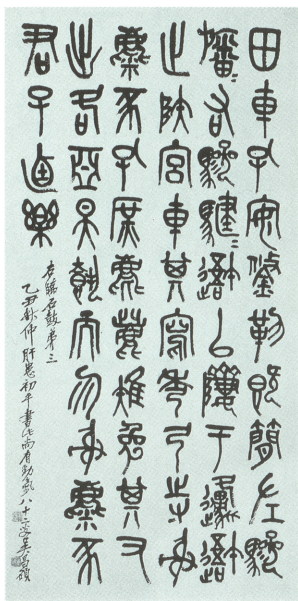 田車孔安鋚勒既簡左驂
旛=右驂騝=避以隮于邍避
止陝宮車其寫秀弓寺射
麋豕孔庶麀鹿雉兔其又
出各亞昊執而勿射麋豕
君子逌樂
右臨石鼓第三
乙丑秋仲肝患初平書此尚有勁氣八十二叟吳昌碩